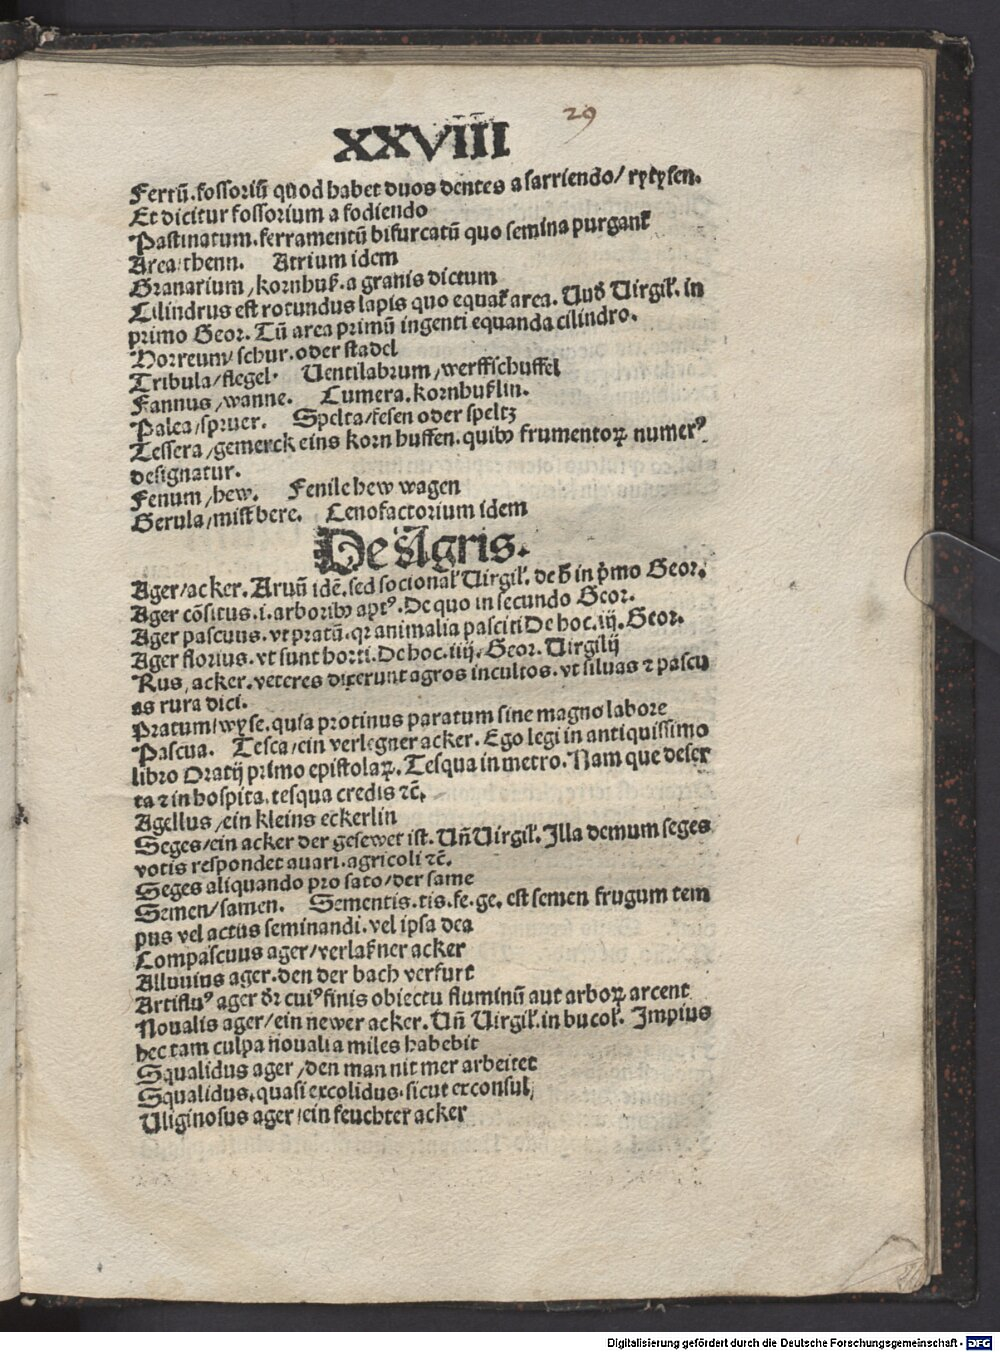 29
XXVIII
Ferrū. fossoriū quod habet duos dentes a sarriendo/ rytysen.
Et dicitur fossorium a fodiendo
Pastinatum. ferramentū bifurcatū quo semina purganť
Area/thenn. Atrium idem
Granarium/kornhuß. a granis dictum
Cilindrus est rotundus lapis quo equať area. Vnď Virgiľ. in
primo Geor. Tū area primū ingenti equanda cilindro.
Horreum/schur. oder stadel
Tribula/flegel. Ventilabrum/werffschuffel
Fannus/wanne. Cumera. kornhußlin.
Palea/spruer. Spelta/fesen oder speltz
Tessera/gemerck eins korn huffen. quibꝫ frumentoꝝ numerꝰ
designatur.
Fenum/hew. Fenile hew wagen
Gerula/mistbere. Cenofactorium idem
De Agris.
Ager/acker. Aruū idē. sed socionaľ Virgiľ. de h̄ in pͥmo Geor.
Ager cōsitus. i. arboribꝫ aptꝰ. De quo in secundo Geor.
Ager pascuus. vt pratū. qꝛ animalia pasciti De hoc. iij. Geor.
Ager florius. vt sunt horti. De hoc. iiij. Geor. Virgilij
Rus, acker. veteres dixerunt agros incultos. vt siluas ⁊ pascu
as rura dici.
Pratum/wyse. quia protinus paratum sine magno labore
Pascua. Tesca/ein verlegner acker. Ego legi in antiquissimo
libro Oratij primo epistolaꝝ. Tesqua in metro. Nam que deser
ta ⁊ inhospita. tesqua credis ⁊c̄.
Agellus/ein kleins eckerlin
Seges/ein acker der gesewet ist. Vn̄ Virgiľ. Illa demum seges
votis respondet auari. agricoli ⁊c̄.
Seges aliquando pro sato/der same
Semen/samen. Sementis. tis. fe. ge. est semen frugum tem
pus vel actus seminandi. vel ipsa dea
Compascuus ager/verlaßner acker
Alluuius ager. den der bach verfurt
Artifluꝰ ager dꝛ̄ cuiꝰ finis obiectu fluminū aut arboꝝ arcent
Noualis ager/ein newer acker. Vn̄ Virgiľ. in bucoľ. Impius
hec tam culpa noualia miles habebit
Squalidus ager/den man nit mer arbeitet
Squalidus. quasi excolidus. sicut exconsul/
Vliginosus ager/ein feuchter acker
Digitalisierung gefördert durch die Deutsche Forschungsgemeinschaft - DFG